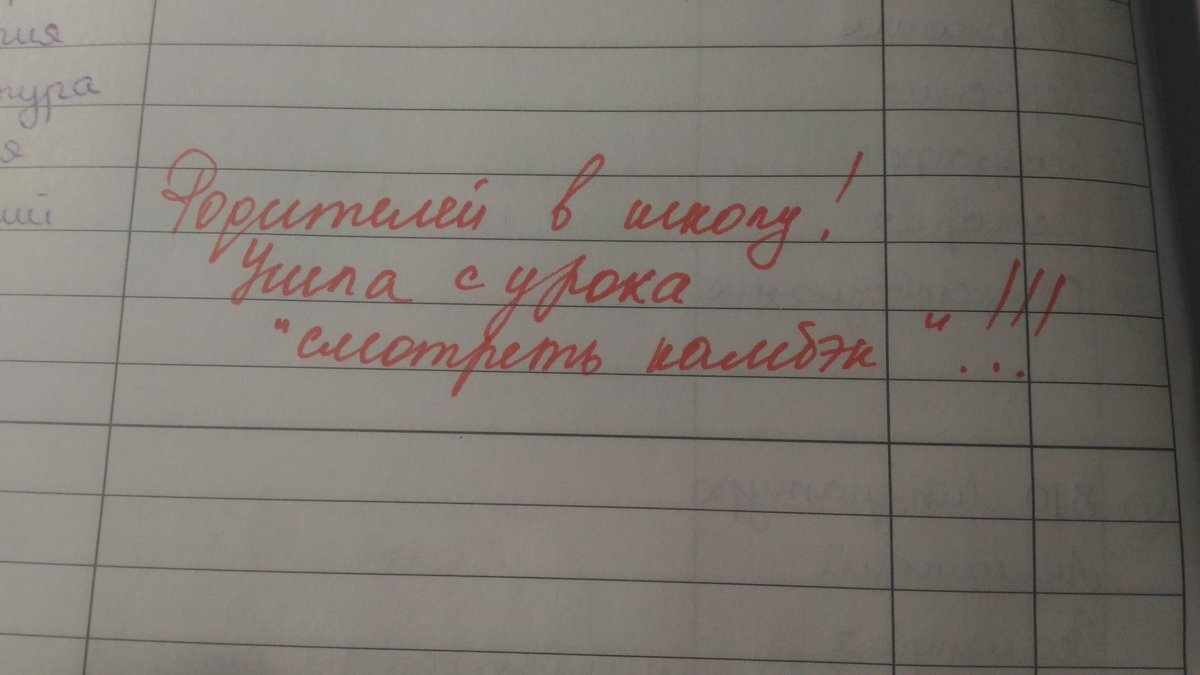 гия
тура
я
ий
Родителей в школу!
Ушла с урока
"смотреть камбэк"...!!!